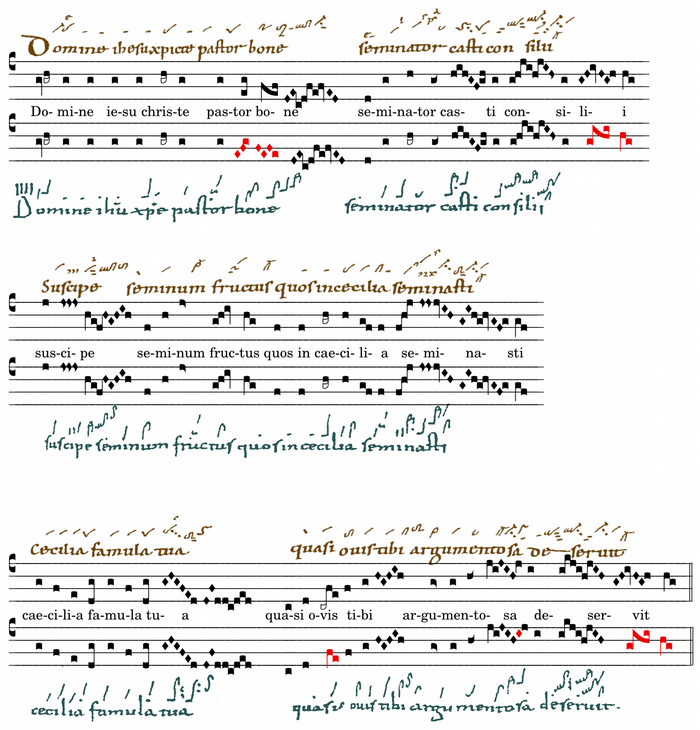 Domine ihesu xpicte pastor bone seminator casti con silii
Do- mi-ne ie-su chris-te pas-tor bo- ne se-mi-na-tor cas- ti con- si- li- i
Domine ihu xpe pastor bone seminator casti consilii
Suscipe seminum fructus quos in cecilia seminasti
sus-ci- pe se-mi-num fruc-tus quos in cae-ci- li- a se- mi- na- sti
suscipe seminum fructus quos in cecilia seminasti
Cecilia famula tua quasi ouis tibi argumentosa de seruit
cae-ci-li-a fa-mu-la tu- a qua-si o-vis ti-bi ar-gu-men-to- sa de- ser- vit
cecilia famula tua quasi ouis tibi argumentosa deseruit.